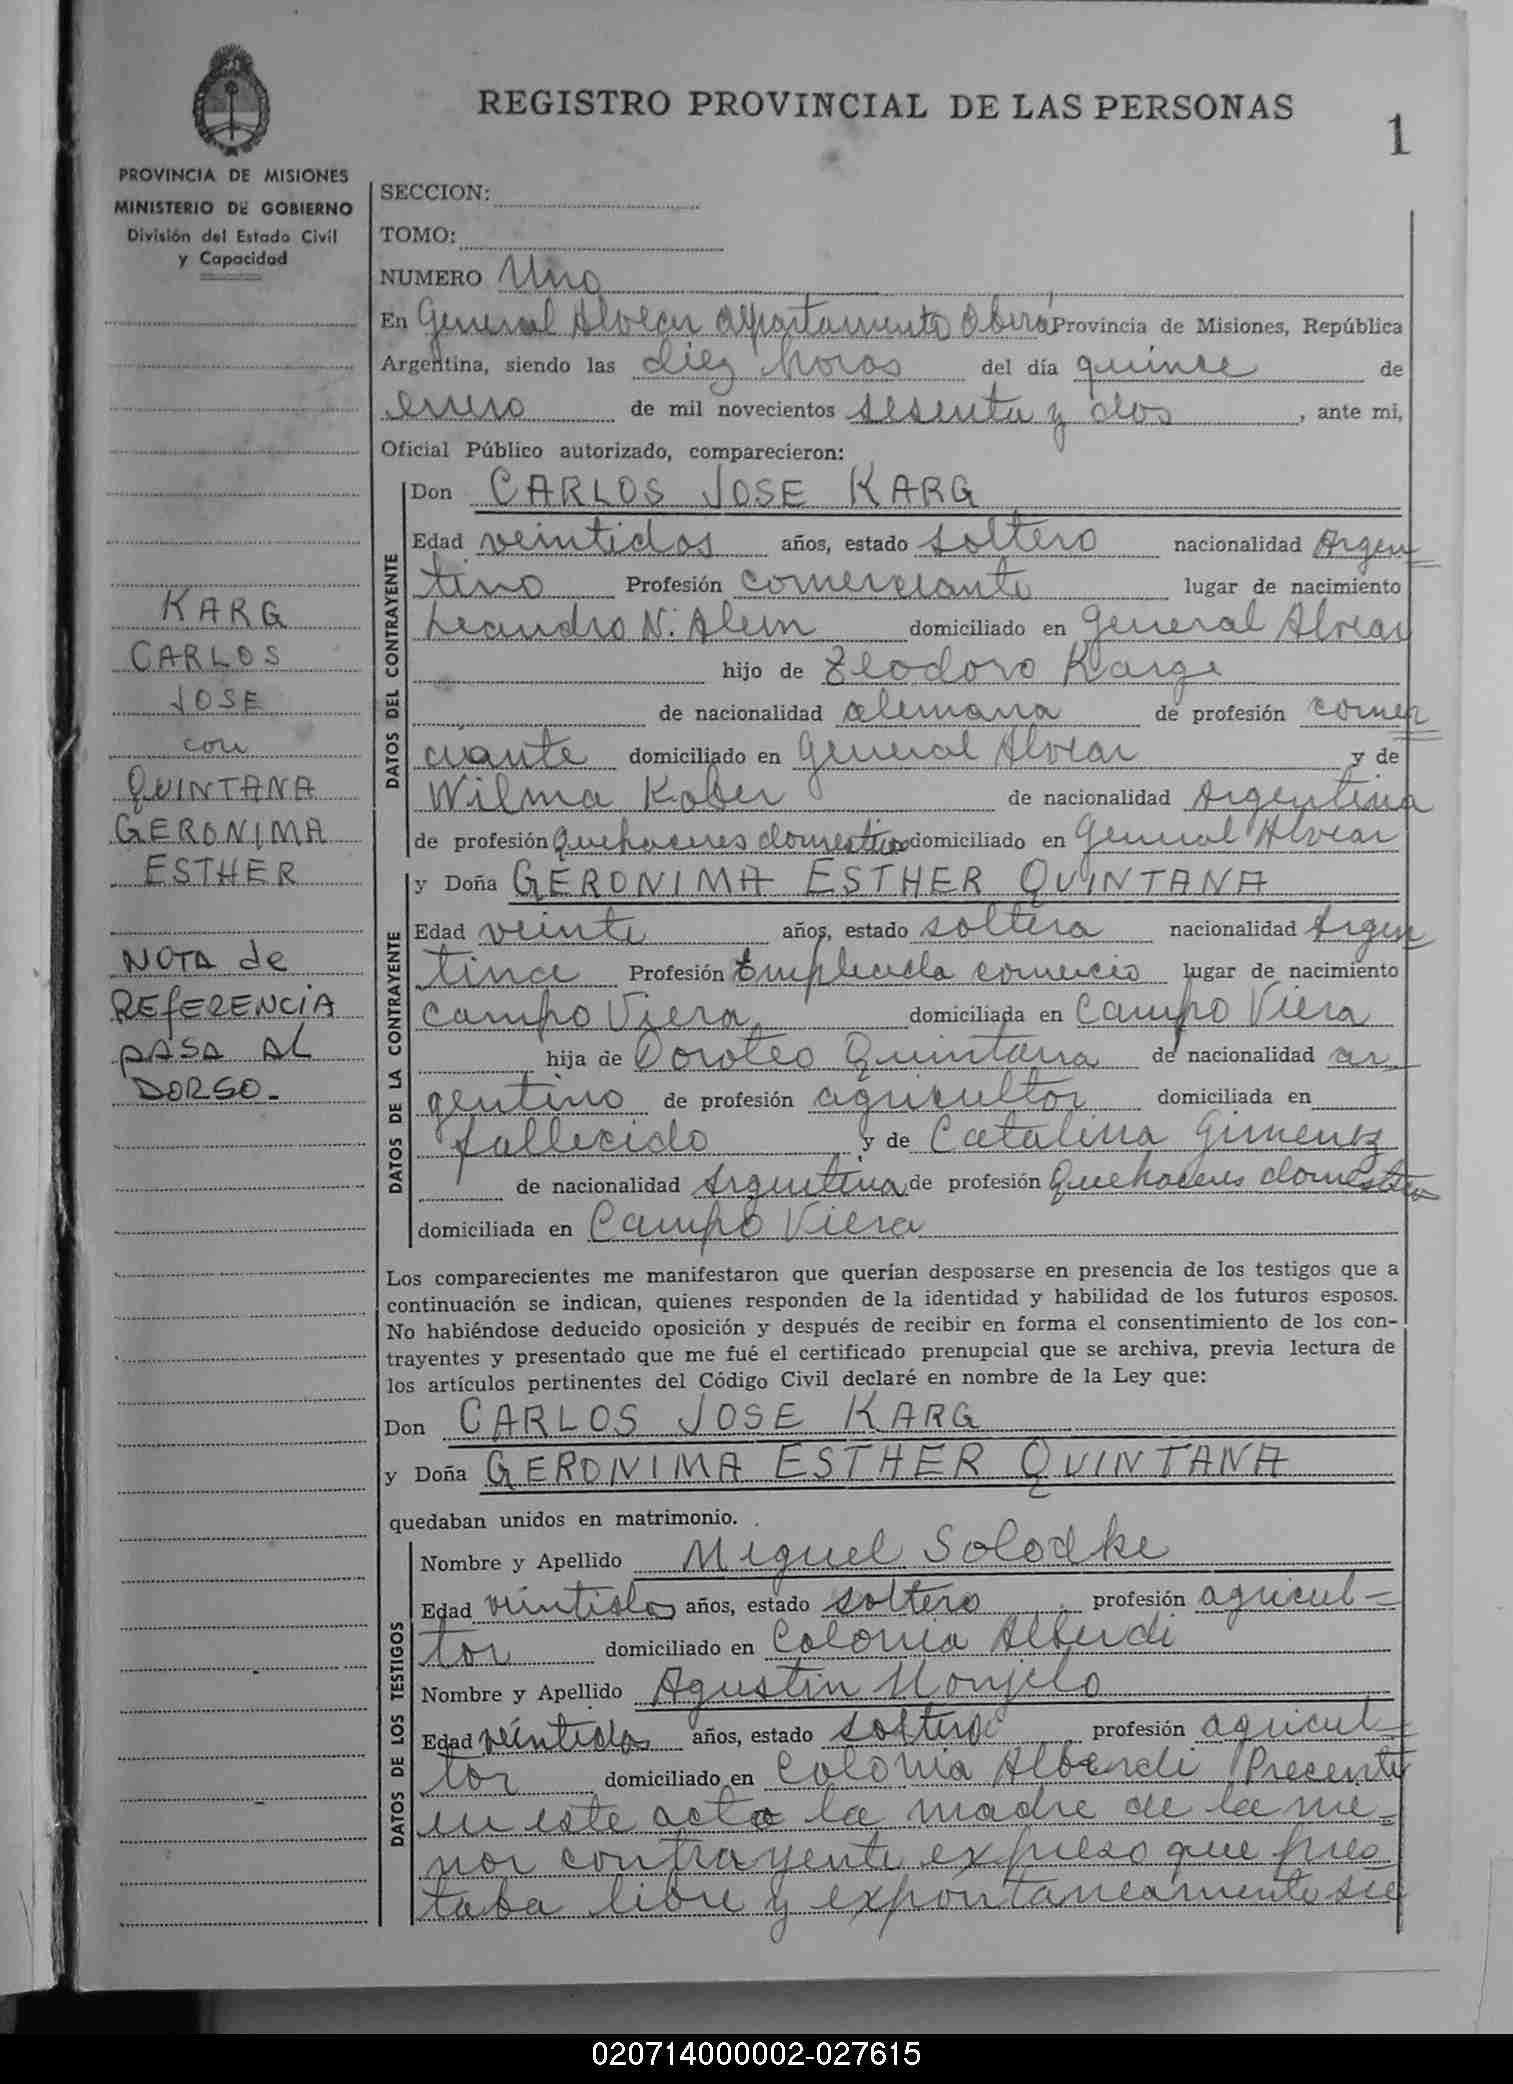 REGISTRO PROVINCIAL DE LAS PERSONAS
1
PROVINCIA DE MISIONES
MINISTERIO DE GOBIERNO
División del Estado Civil
y Capacidad
KARG
CARLOS
JOSE
con
QUINTANA
GERONIMA
ESTHER
NOTA de
REFERENCIA
PASA AL
DORSO.-
SECCION:
TOMO:
NUMERO Uno
En General Alvear departamento Oberá Provincia de Misiones, República
Argentina, siendo las diez horas del día quince de
enero de mil novecientos sesenta y dos, ante mi,
Oficial Público autorizado, comparecieron:
DATOS DEL CONTRAYENTE
Don CARLOS JOSE KARG
Edad veintidos años, estado soltero nacionalidad Argen=
tino Profesión comerciante lugar de nacimiento
Leandro N. Alem domiciliado en General Alvear
hijo de Teodoro Karge
de nacionalidad alemana de profesión comer=
ciante domiciliado en General Alvear y de
Wilma Kober de nacionalidad Argentina
de profesión Quehaceres domesticos domiciliado en General Alvear
DATOS DE LA CONTRAYENTE
y Doña GERONIMA ESTHER QUINTANA
Edad veinte años, estado soltera nacionalidad Argen
tina Profesión Empleada comercio lugar de nacimiento
Campo Viera domiciliada en Campo Viera
hija de Doroteo Quintana de nacionalidad ar
gentino de profesión agricultor domiciliada en
fallecido y de Catalina Gimenez
de nacionalidad Argentina de profesión Quehaceres domesticos
domiciliada en Campo Viera
Los comparecientes me manifestaron que querían desposarse en presencia de los testigos que a
continuación se indican, quienes responden de la identidad y habilidad de los futuros esposos.
No habiéndose deducido oposición y después de recibir en forma el consentimiento de los con-
trayentes y presentado que me fué el certificado prenupcial que se archiva, previa lectura de
los artículos pertinentes del Código Civil declaré en nombre de la Ley que:
Don CARLOS JOSE KARG
y Doña GERONIMA ESTHER QUINTANA
quedaban unidos en matrimonio.
DATOS DE LOS TESTIGOS
Nombre y Apellido Miguel Solodke
Edad veintidos años, estado soltero profesión agricul=
tor domiciliado en Colonia Alberdi
Nombre y Apellido Agustin
Edad veintidos años, estado soltero profesión agricul=
tor domiciliado en Colonia Alberdi Precente
en este acto la madre de la me=
nor contrayente expreso que pres
taba libre y expontaneamente su
020714000002-027615